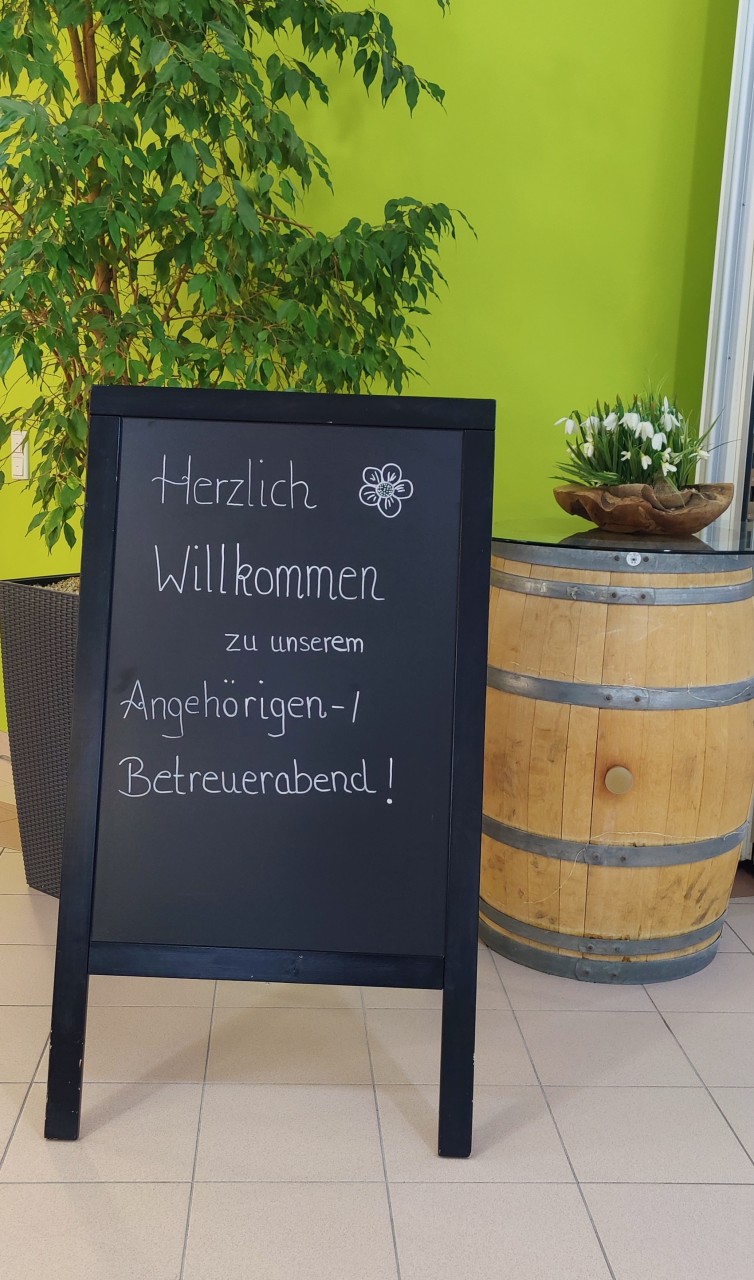 Herzlich
Willkommen
zu unserem
Angehörigen-/
Betreuerabend!